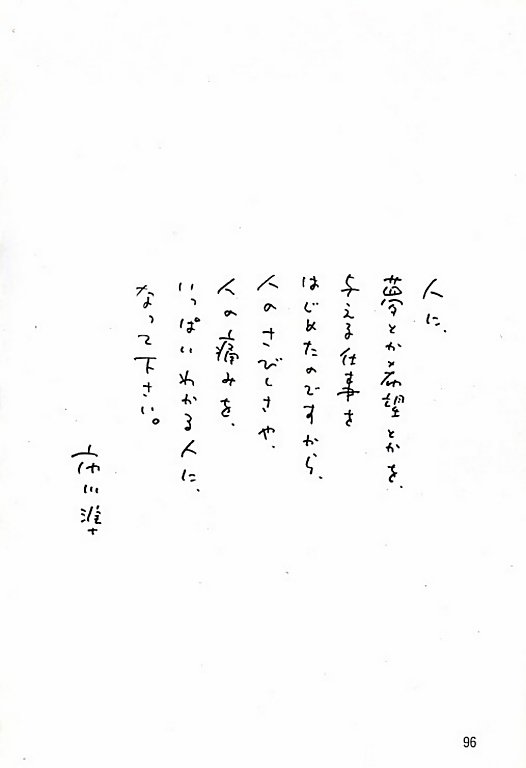 人に、
夢とか希望とかを、
与える仕事を
はじめたのですから、
人のさびしさや、
人の痛みを、
いっぱいわかる人に、
なって下さい。
市川準
96